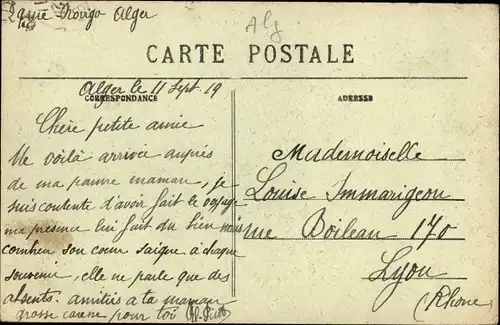 2 rue Rovigo Alger
Alg
CARTE POSTALE
Alger le 11 Sept. 19
CORRESPONDANCE
ADRESSE
Chère petite amie
Me voilà arrivée auprès
de ma pauvre maman, je
suis contente d'avoir fait le voyage
ma présence lui fait du bien mais
combien son coeur saigne à chaque
souvenir, elle ne parle que des
absents. amitiés a ta maman
grosse caresse pour toi
Mademoiselle
Louise Immarigeon
rue Boileau 170
Lyon
(Rhône)